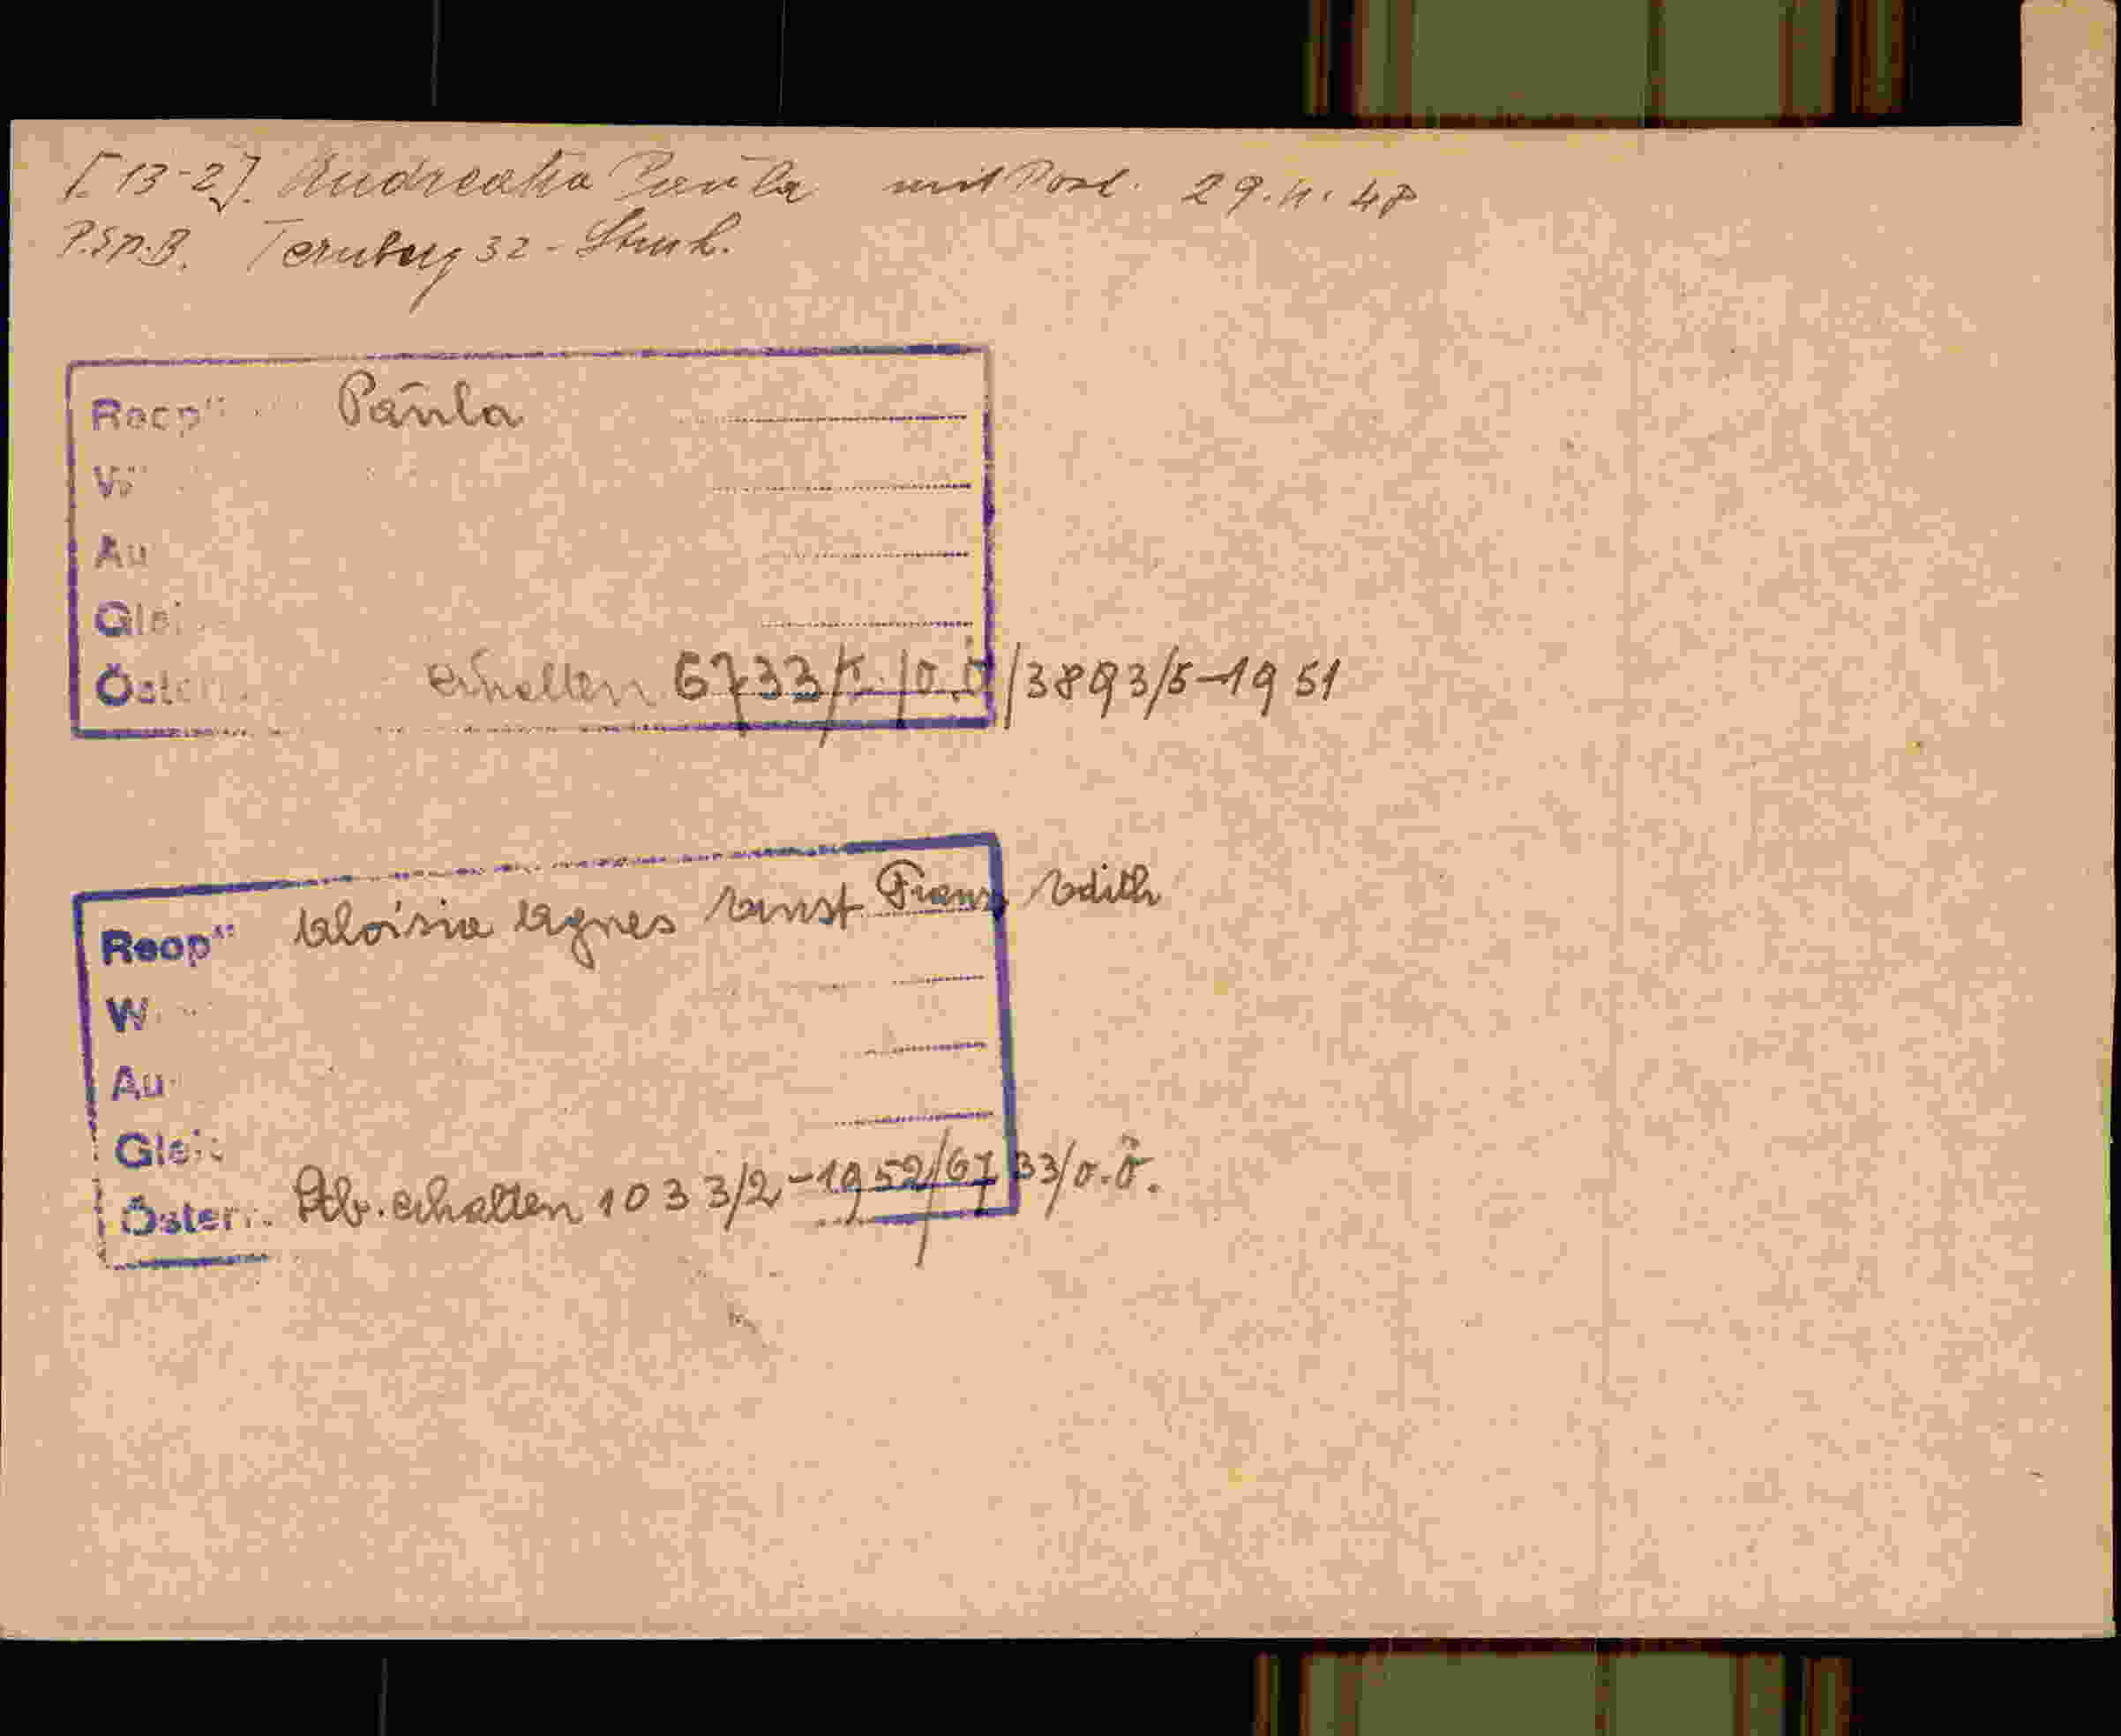 [13-2]. Andreatta Paula mit Post. 29.4.48
P.Sp.B. Ternberg 32 -
Paula
Au
Glei
Öster. erhalten 6733/ /O.Ö/3893/5-1951
Aloisia Agnes Ernst Franz Edith
W
Au
Glei
Österr. Stb. erhalten 1033/2-1952/6733/O.Ö.